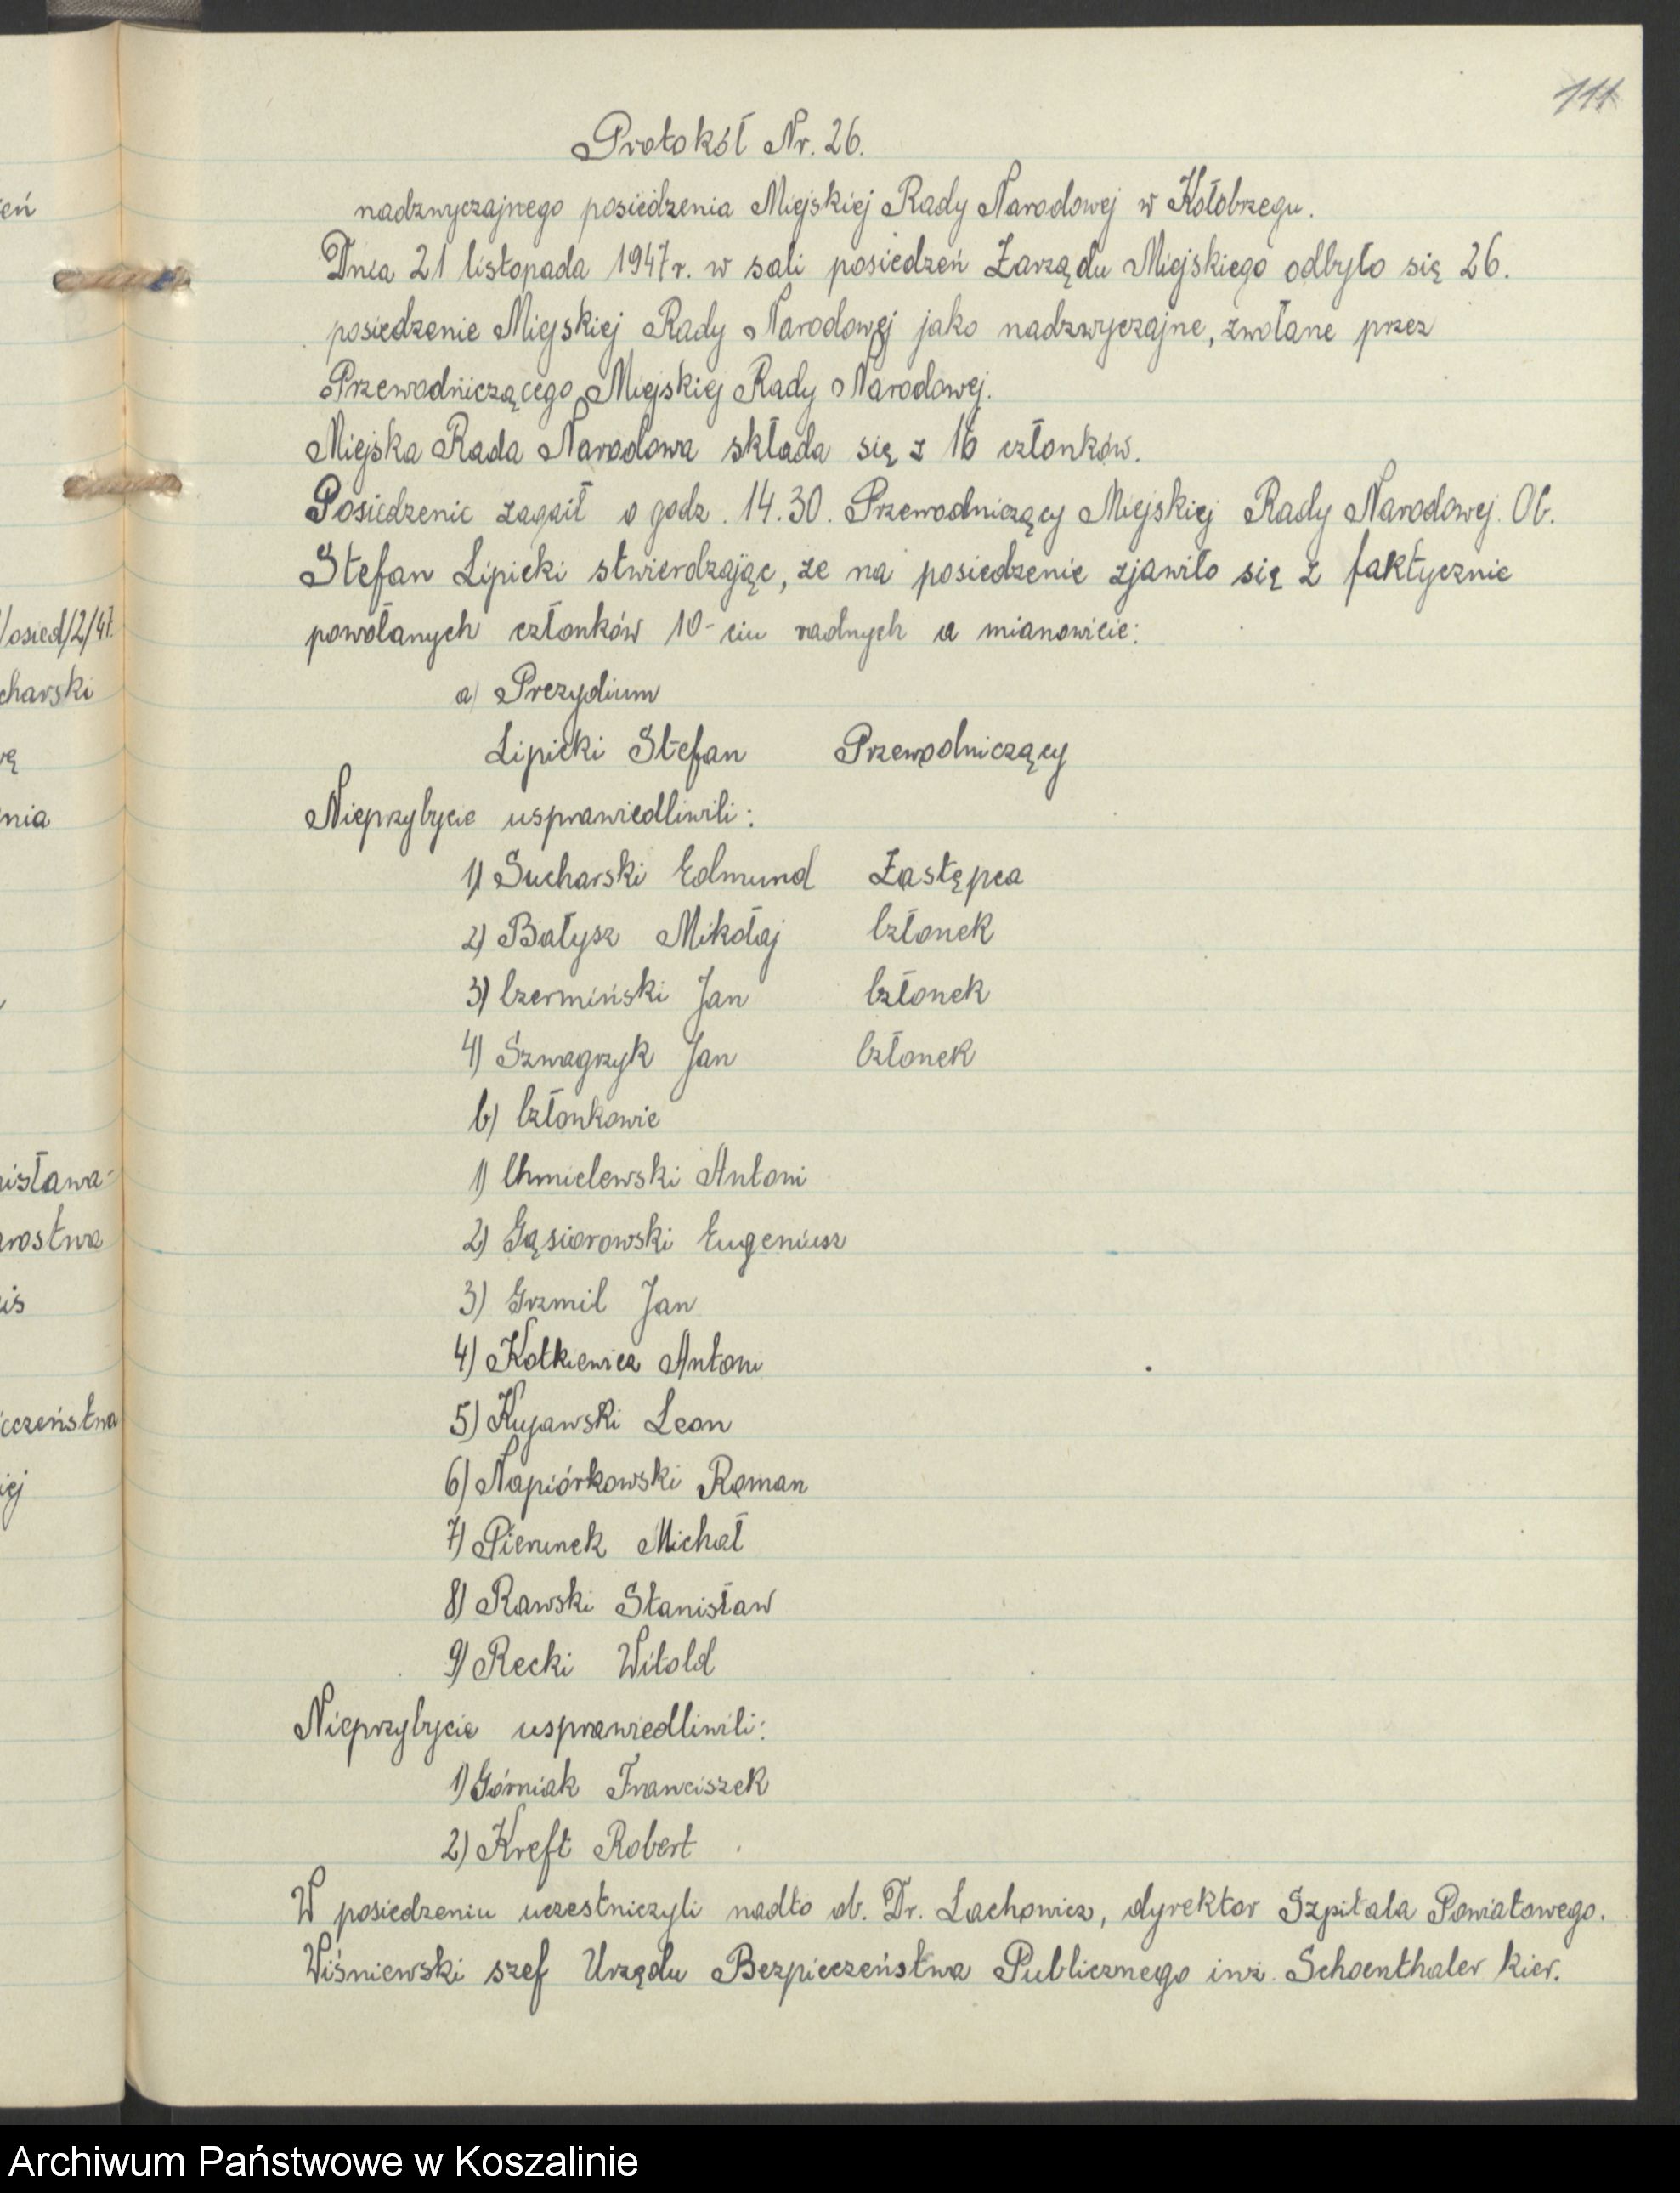 eń
/osied/2/47.
charski
rę
nia
nisława-
arostwa
is
ieczeństwa
iej
111
Protokół Nr. 26.
nadzwyczajnego posiedzenia Miejskiej Rady Narodowej w Kołobrzegu.
Dnia 21 listopada 1947 r. w sali posiedzeń Zarządu Miejskiego odbyło się 26.
posiedzenie Miejskiej Rady Narodowej jako nadzwyczajne, zwołane przez
Przewodniczącego Miejskiej Rady Narodowej.
Miejska Rada Narodowa składa się z 16 członków.
Posiedzenie zagaił o godz. 14.30. Przewodniczący Miejskiej Rady Narodowej. Ob.
Stefan Lipicki stwierdzając, ze na posiedzenie zjawiło się z faktycznie
powołanych członków 10-ciu radnych a mianowicie:
a) Prezydium
Lipicki Stefan Przewodniczący
Nieprzybycie usprawiedliwili:
1) Sucharski Edmund Zastępca
2) Bałysz Mikołaj Członek
3) Czermiński Jan Członek
4) Szwagrzyk Jan Członek
b) Członkowie
1) Chmielewski Antoni
2) Gąsiorowski Eugeniusz
3) Grzmil Jan
4) Kotkiewicz Antoni
5) Kujawski Leon
6) Napiórkowski Roman
7) Pierunek Michał
8) Rawski Stanisław
9) Recki Witold
Nieprzybycie usprawiedliwili:
1) Górniak Franciszek
2) Kreft Robert
W posiedzeniu uczestniczyli nadto ob. Dr. Lachowicz, dyrektor Szpitala Powiatowego.
Wiśniewski szef Urzędu Bezpieczeństwa Publicznego inż. Schoenthaler kier.
Archiwum Państwowe w Koszalinie